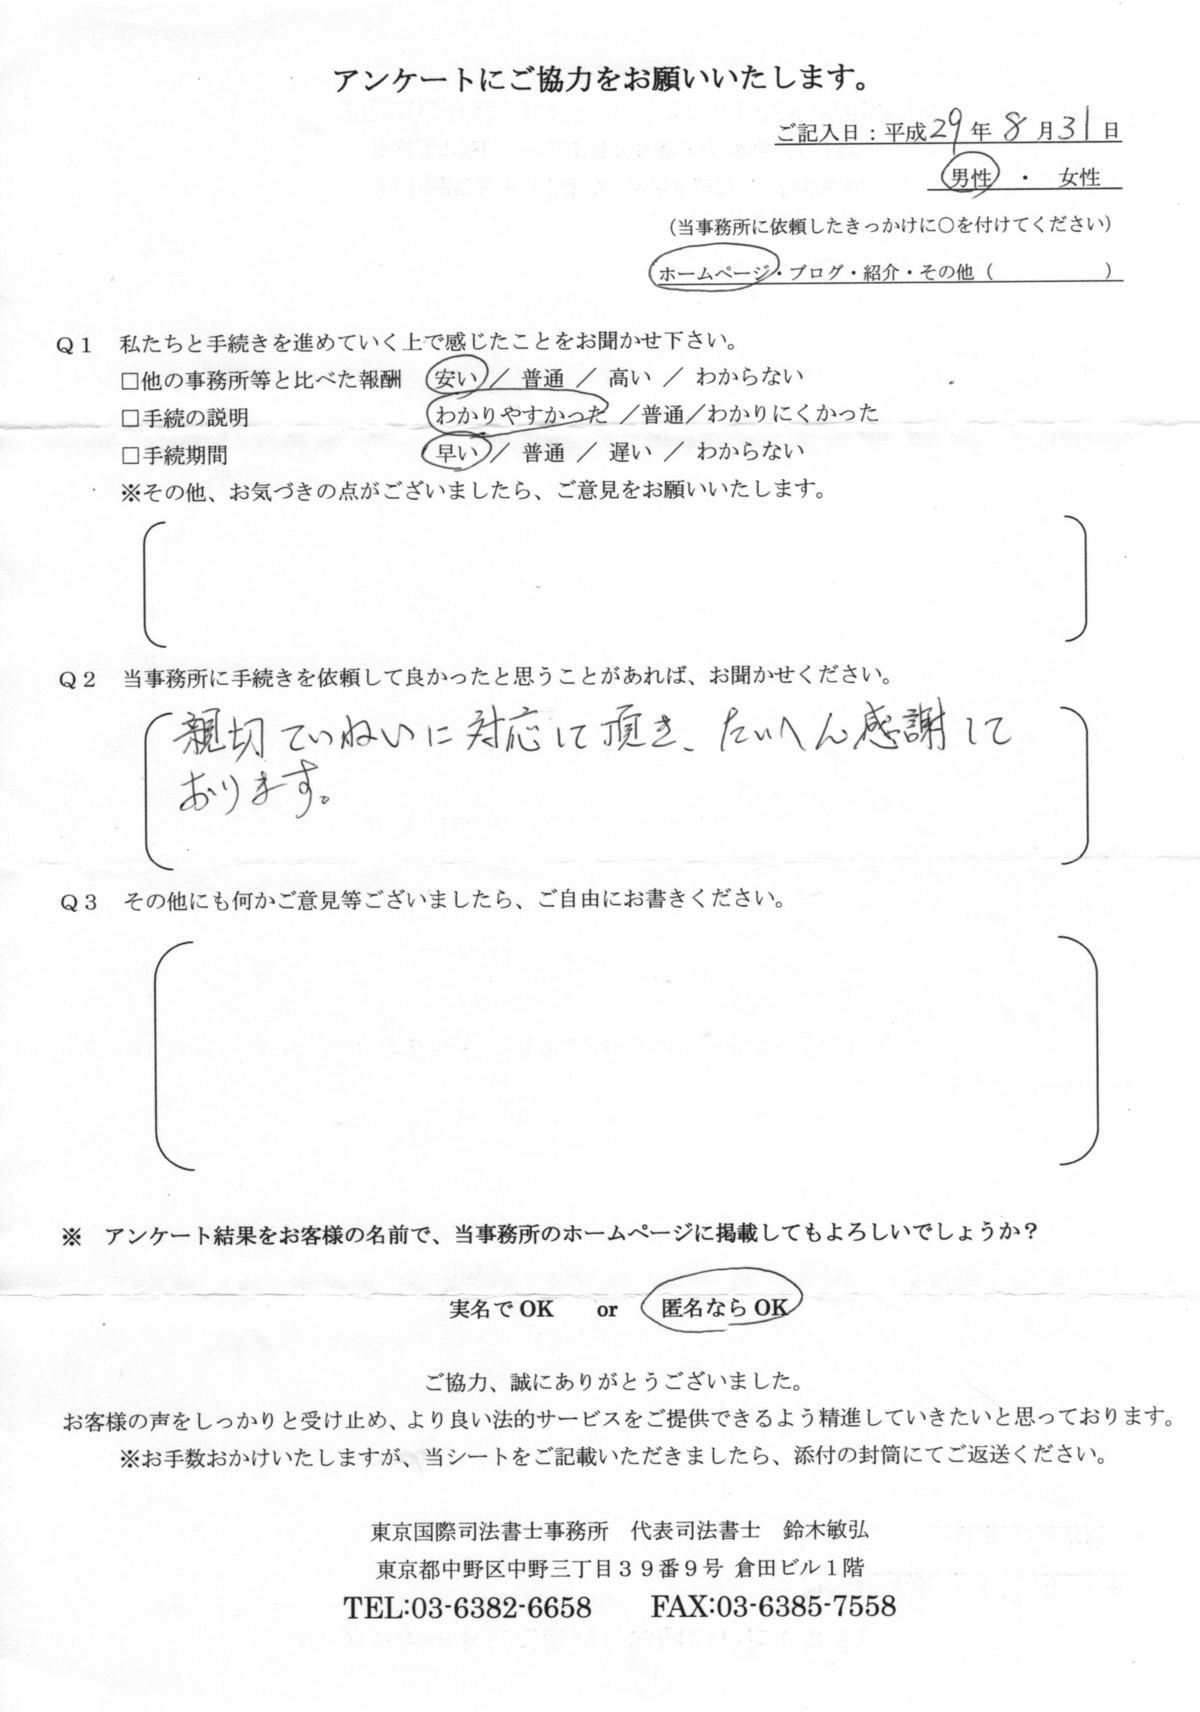 アンケートにご協力をお願いいたします。
ご記入日：平成29年 8月31日
男性 ・ 女性
（当事務所に依頼したきっかけに〇を付けてください）
ホームページ・ブログ・紹介・その他（　　　　　）
Ｑ１　私たちと手続きを進めていく上で感じたことをお聞かせ下さい。
□他の事務所等と比べた報酬　安い ／ 普通 ／ 高い ／ わからない
□手続の説明　わかりやすかった ／普通／わかりにくかった
□手続期間　早い ／ 普通 ／ 遅い ／ わからない
※その他、お気づきの点がございましたら、ご意見をお願いいたします。
Ｑ２　当事務所に手続きを依頼して良かったと思うことがあれば、お聞かせください。
親切ていねいに対応して頂き、たいへん感謝して
おります。
Ｑ３　その他にも何かご意見等ございましたら、ご自由にお書きください。
※　アンケート結果をお客様の名前で、当事務所のホームページに掲載してもよろしいでしょうか？
実名で OK　or　匿名なら OK
ご協力、誠にありがとうございました。
お客様の声をしっかりと受け止め、より良い法的サービスをご提供できるよう精進していきたいと思っております。
※お手数おかけいたしますが、当シートをご記載いただきましたら、添付の封筒にてご返送ください。
東京国際司法書士事務所　代表司法書士　鈴木敏弘
東京都中野区中野三丁目３９番９号 倉田ビル１階
TEL:03-6382-6658　FAX:03-6385-7558